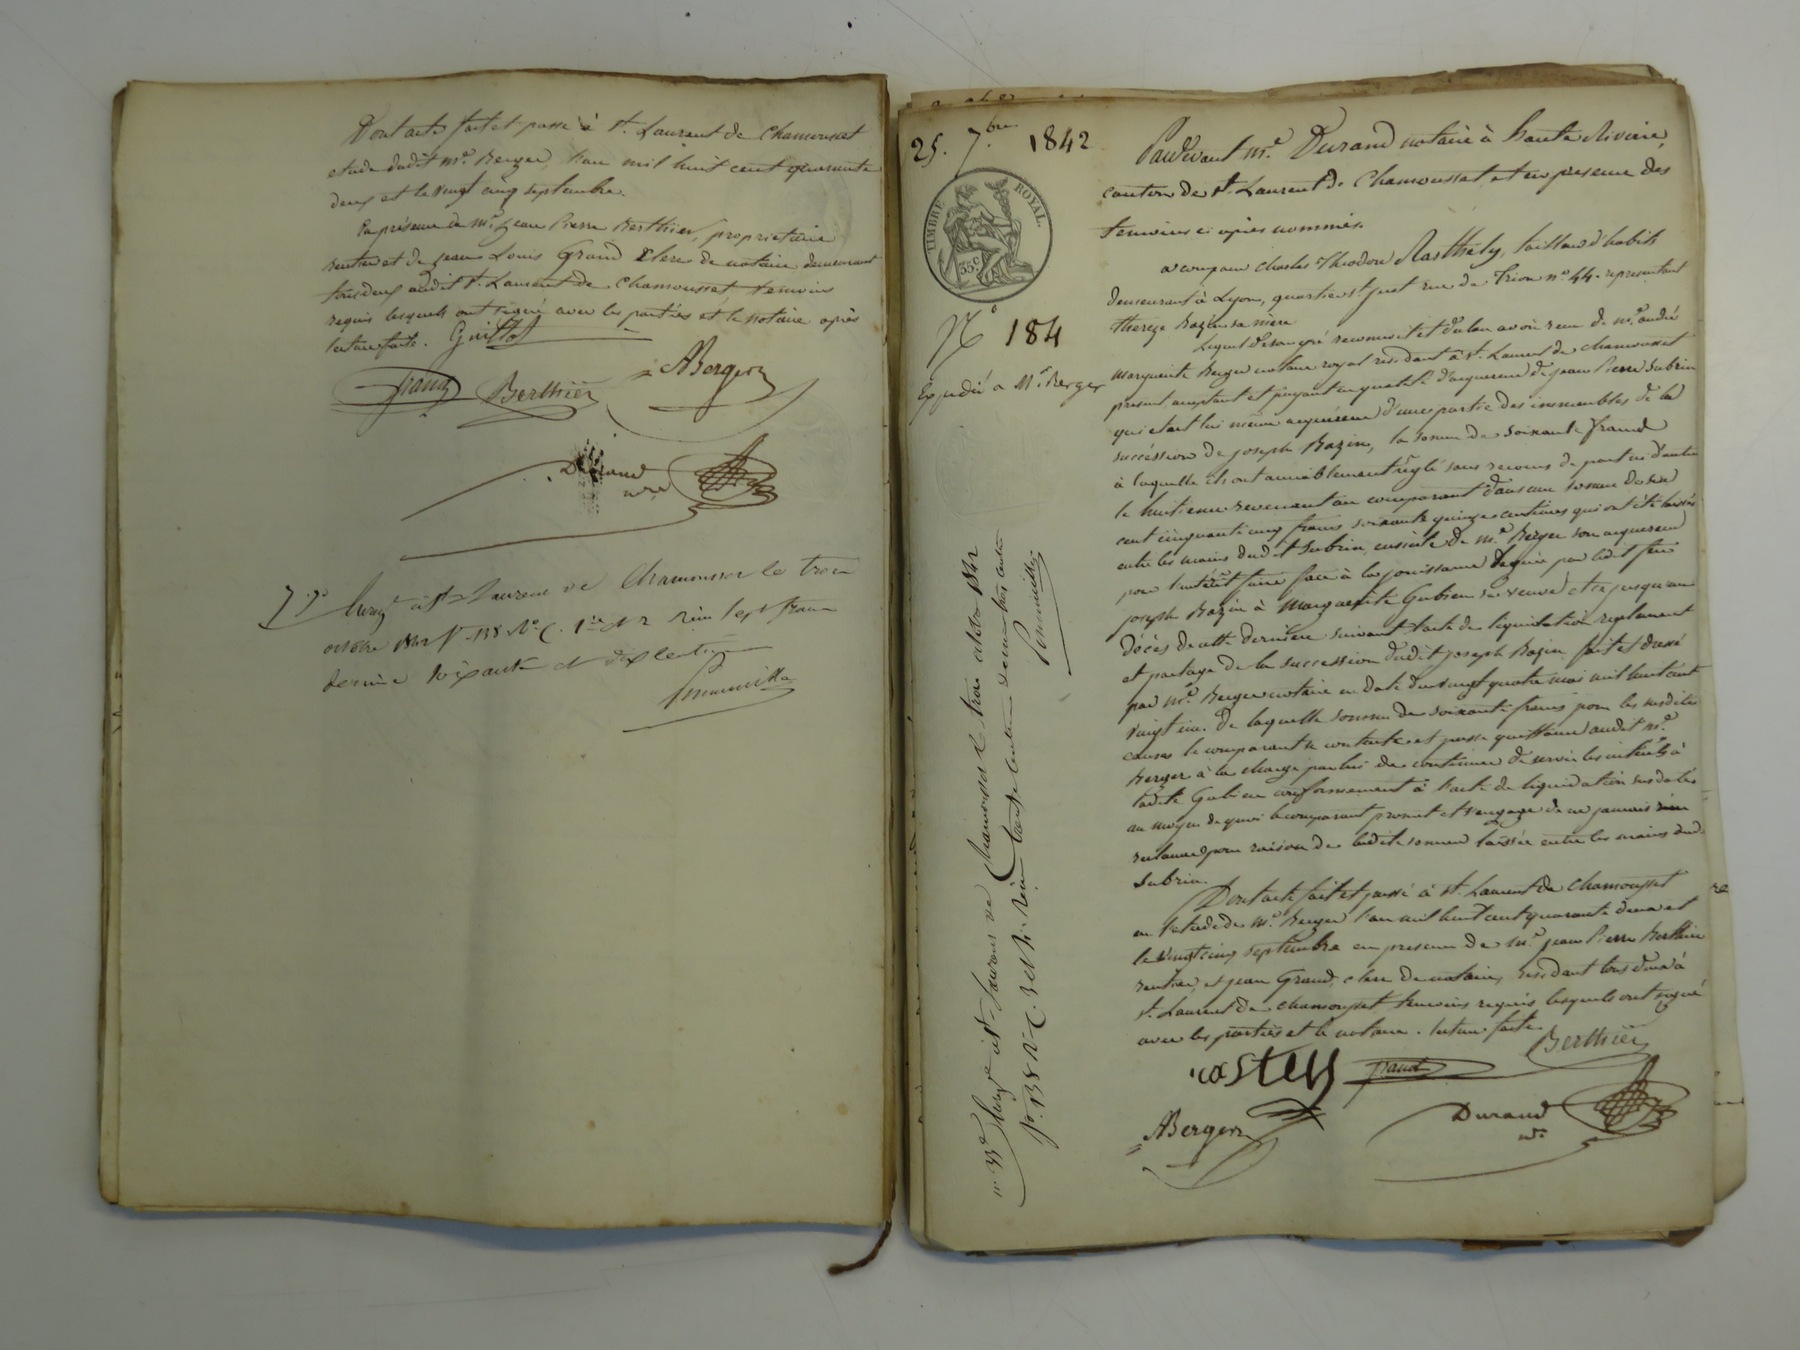 Dont acte fait et passé à St. Laurent de Chamousset
etude dudit Me. Berger, l'an mil huit cent quarante
deux et le vingt cinq septembre.
En présence de Mr. Jean Pierre Berthier, proprietaire
rentier et de jean Louis Grand Clerc de notaire demeurant
tous deux audit St. Laurent de Chamousset temoins
requis lesquels ont signé avec les parties et le notaire après
lecture faite. Guillot
Grand Berthier ABerger
Durand
nre
Enregt. à St Laurent de Chamousset le trois
octobre 1842 fo. 138 Ro. C. 1re et 2 reçu sept francs
decime soixante et dix centimes
25. 7.bre 1842
TIMBRE ROYAL.
35 c.
No 184
Expedié a Me. Berger
Pardevant Me. Durand notaire à haute Riviere,
canton de St. Laurent de Chamousset, et en presence des
temoins ci après nommés.
a comparu Charles Théodore Masthely, tailleur d'habits
demeurant à Lyon, quartier St. just rue de Trion no. 44. representant
thereze Bazin sa mère
Lequel de son gré reconnait et déclare avoir reçu de Me. andré
marguerite Berger notaire royal residant à St. Laurent de chamousset
present, acceptant et payant en qualité d'acquereur de jean Pierre Subrin
qui etait lui même acquéreur d'une partie des immeubles de la
succéssion de joseph Bazin, la somme de soixante francs
à laquelle ils ont amiablement réglé sans recours de part ni d'autre
le huitieme revenant au comparant dans une somme de
cent cinquante cinq francs soixante quinze centimes qui ont été laissés
entre les mains dudit Subrin, ensuite de Me. Berger son acquereur
pour l'intérêt faire face à la jouissance leguée par ledit feu
joseph Bazin à Marguerite Gubien sa veuve et ce jusqu'au
décès de cette dernière suivant l'acte de liquidation reglement
et partage de la succession dudit joseph Bazin fait et dressé
par Me. Berger notaire en date du vingt quatre mai mil huit cent
vingt un. De laquelle somme de soixante francs pour les susdites
causes le comparant se contente et passe quittance audit Me.
Berger à la charge par lui de continuer de servir les intérêts à
ladite Gubien conformement à l'acte de liquidation susdaté
au moyen de quoi le comparant promet et s'engage de ne jamais rien
reclamer pour raison de ladite somme laissée entre les mains dud.
Subrin.
Dont acte fait et passé à St. Laurent de Chamousset
en l'etude de Me. Berger l'an mil huit cent quarante deux et
le vingt cinq septembre en presence de Mr. jean Pierre Berthier
rentier, et jean Grand, clerc de notaire, residant tous deux à
St. Laurent de Chamousset temoins requis lesquels ont signé
avec les parties et le notaire. lecture faite.
Berthier
Grand
ABerger Durand
nre
Enregé à St. Laurent de Chamousset le trois octobre 1842
fo. 138 Ro. C. 3 et 4. reçu trente centimes decime trois centimes